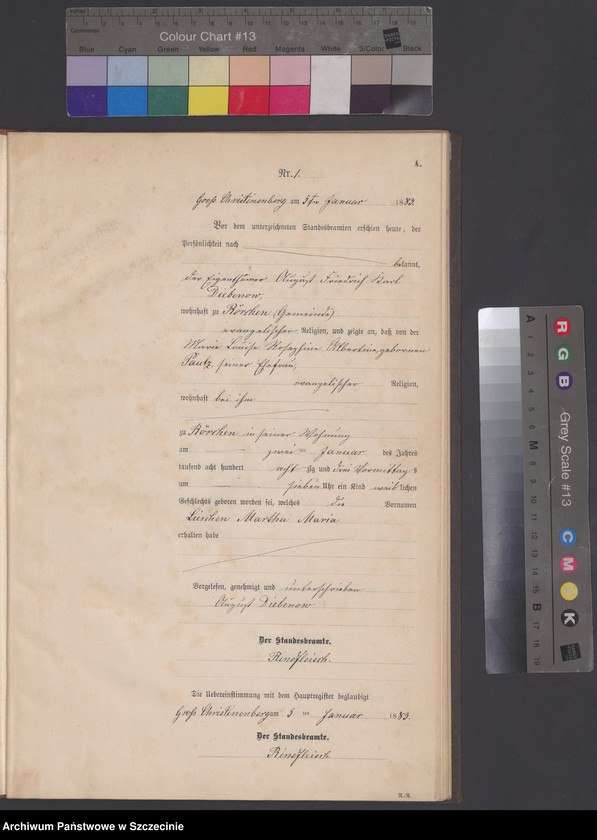 Colour Chart #13
Blue Cyan Green Yellow Red Magenta White 3/Color Black
Centimetres
A.
Nr. 1.
Groß Christinenberg am 5ten Januar 1883.
Vor dem unterzeichneten Standesbeamten erschien heute, der
Persönlichkeit nach
bekannt,
der Eigenthümer August Friedrich Karl
Diebenow,
wohnhaft zu Rörchen (Gemeinde)
evangelischer Religion, und zeigte an, daß von der
Marie Louise Rosephine Albertine, gebornen
Pautz, seiner Ehefrau,
evangelischer Religion,
wohnhaft bei ihm
zu Rörchen in seiner Wohnung
am zwei ten Januar des Jahres
tausend acht hundert acht zig und drei Vormittag s
um sieben Uhr ein Kind weib lichen
Geschlechts geboren worden sei, welches die Vornamen
Lieschen Martha Maria
erhalten habe
Vorgelesen, genehmigt und unterschrieben
August Diebenow
Der Standesbeamte.
Rindfleisch.
Die Uebereinstimmung mit dem Hauptregister beglaubigt
Groß Christinenberg am 5 ten Januar 1883.
Der Standesbeamte.
Rindfleisch.
A 1 2 3 4 5 6 M 8 9 10 11 12 13 14 15 B 17 18 19
R G B
Grey Scale #13
C M Y K
Archiwum Państwowe w Szczecinie